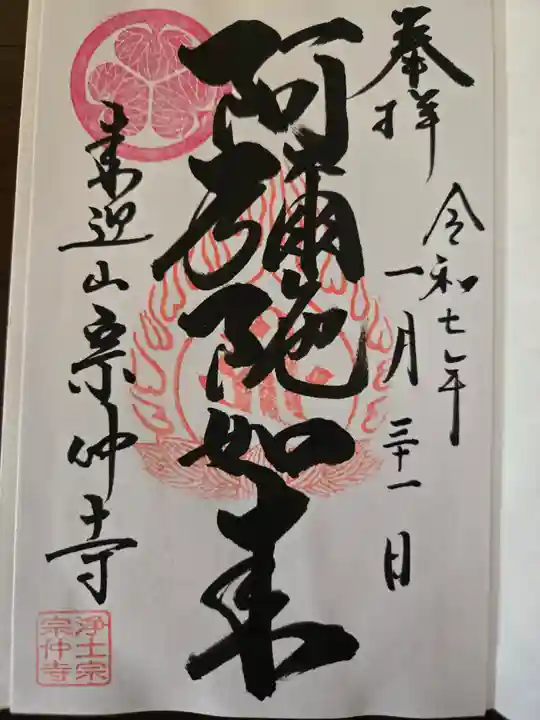 奉拝
令和七年
一月三十一日
阿彌陀如来
来迎山宗仲寺
浄土宗
宗仲寺